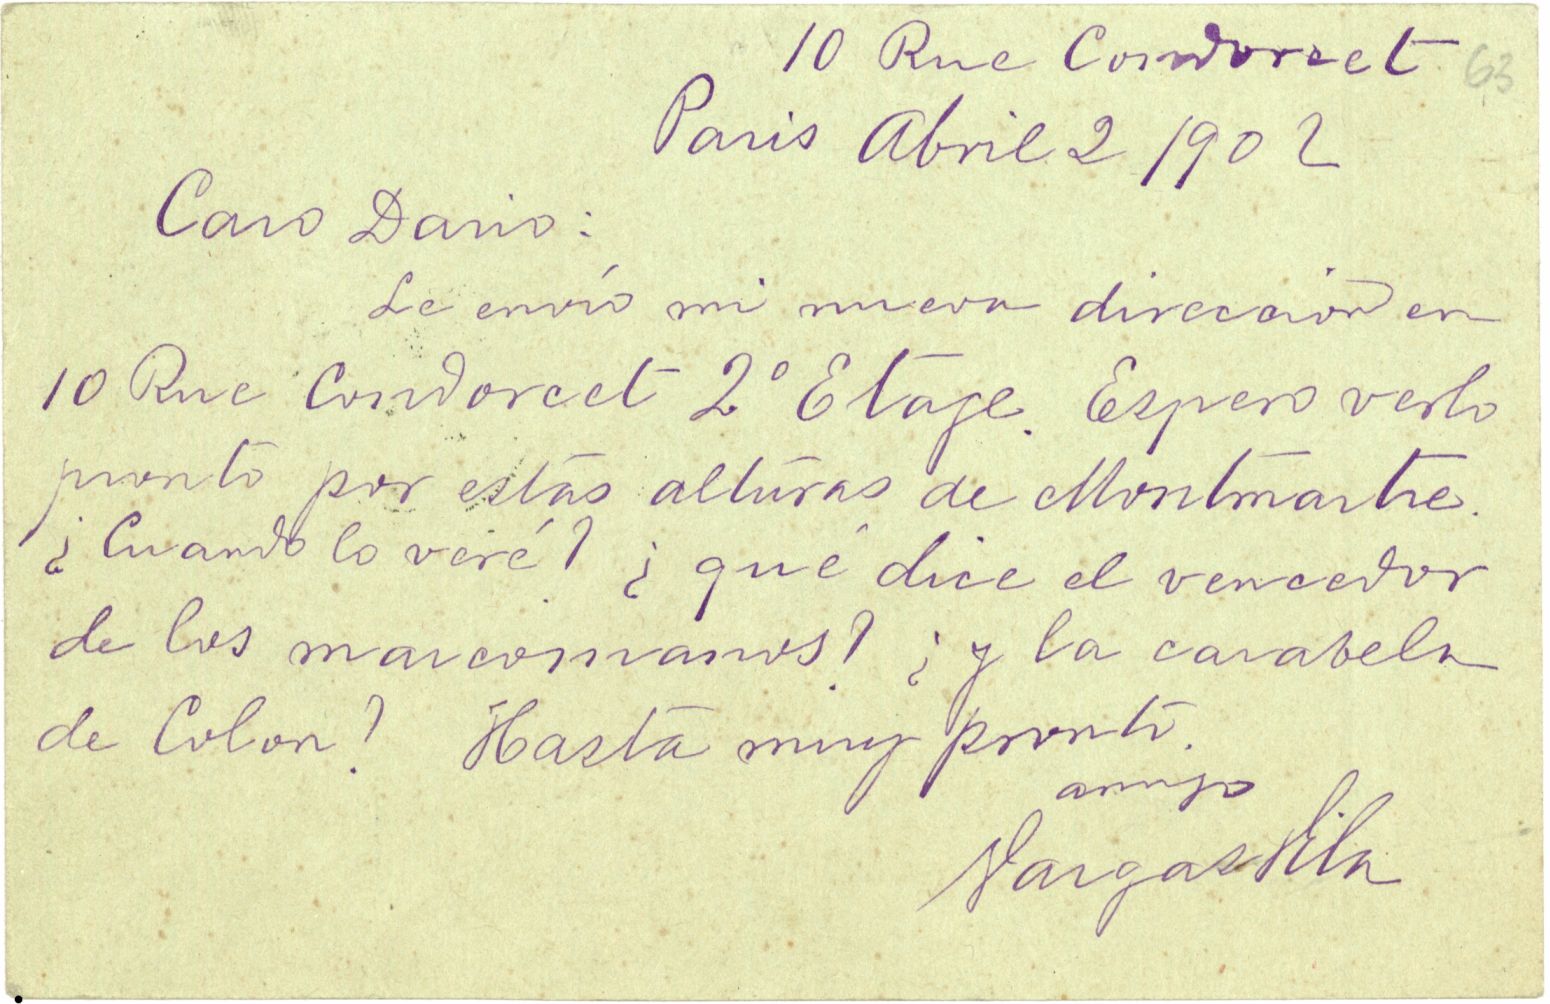 10 Rue Condorcet 63
Paris Abril 2 1902
Caro Dario:
Le envío mi nueva dirección en
10 Rue Condorcet 2º Etage. Espero verlo
pronto por estas alturas de Montmartre.
¿Cuando lo veré? ¿qué dice el vencedor
de los marcomanos? ¿y la carabela
de Colon? Hasta muy pronto.
amigo
Vargas Vila